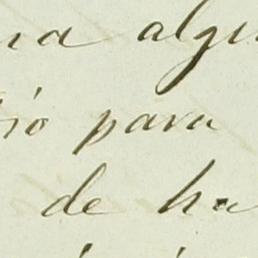 na algu
ió para
de ha